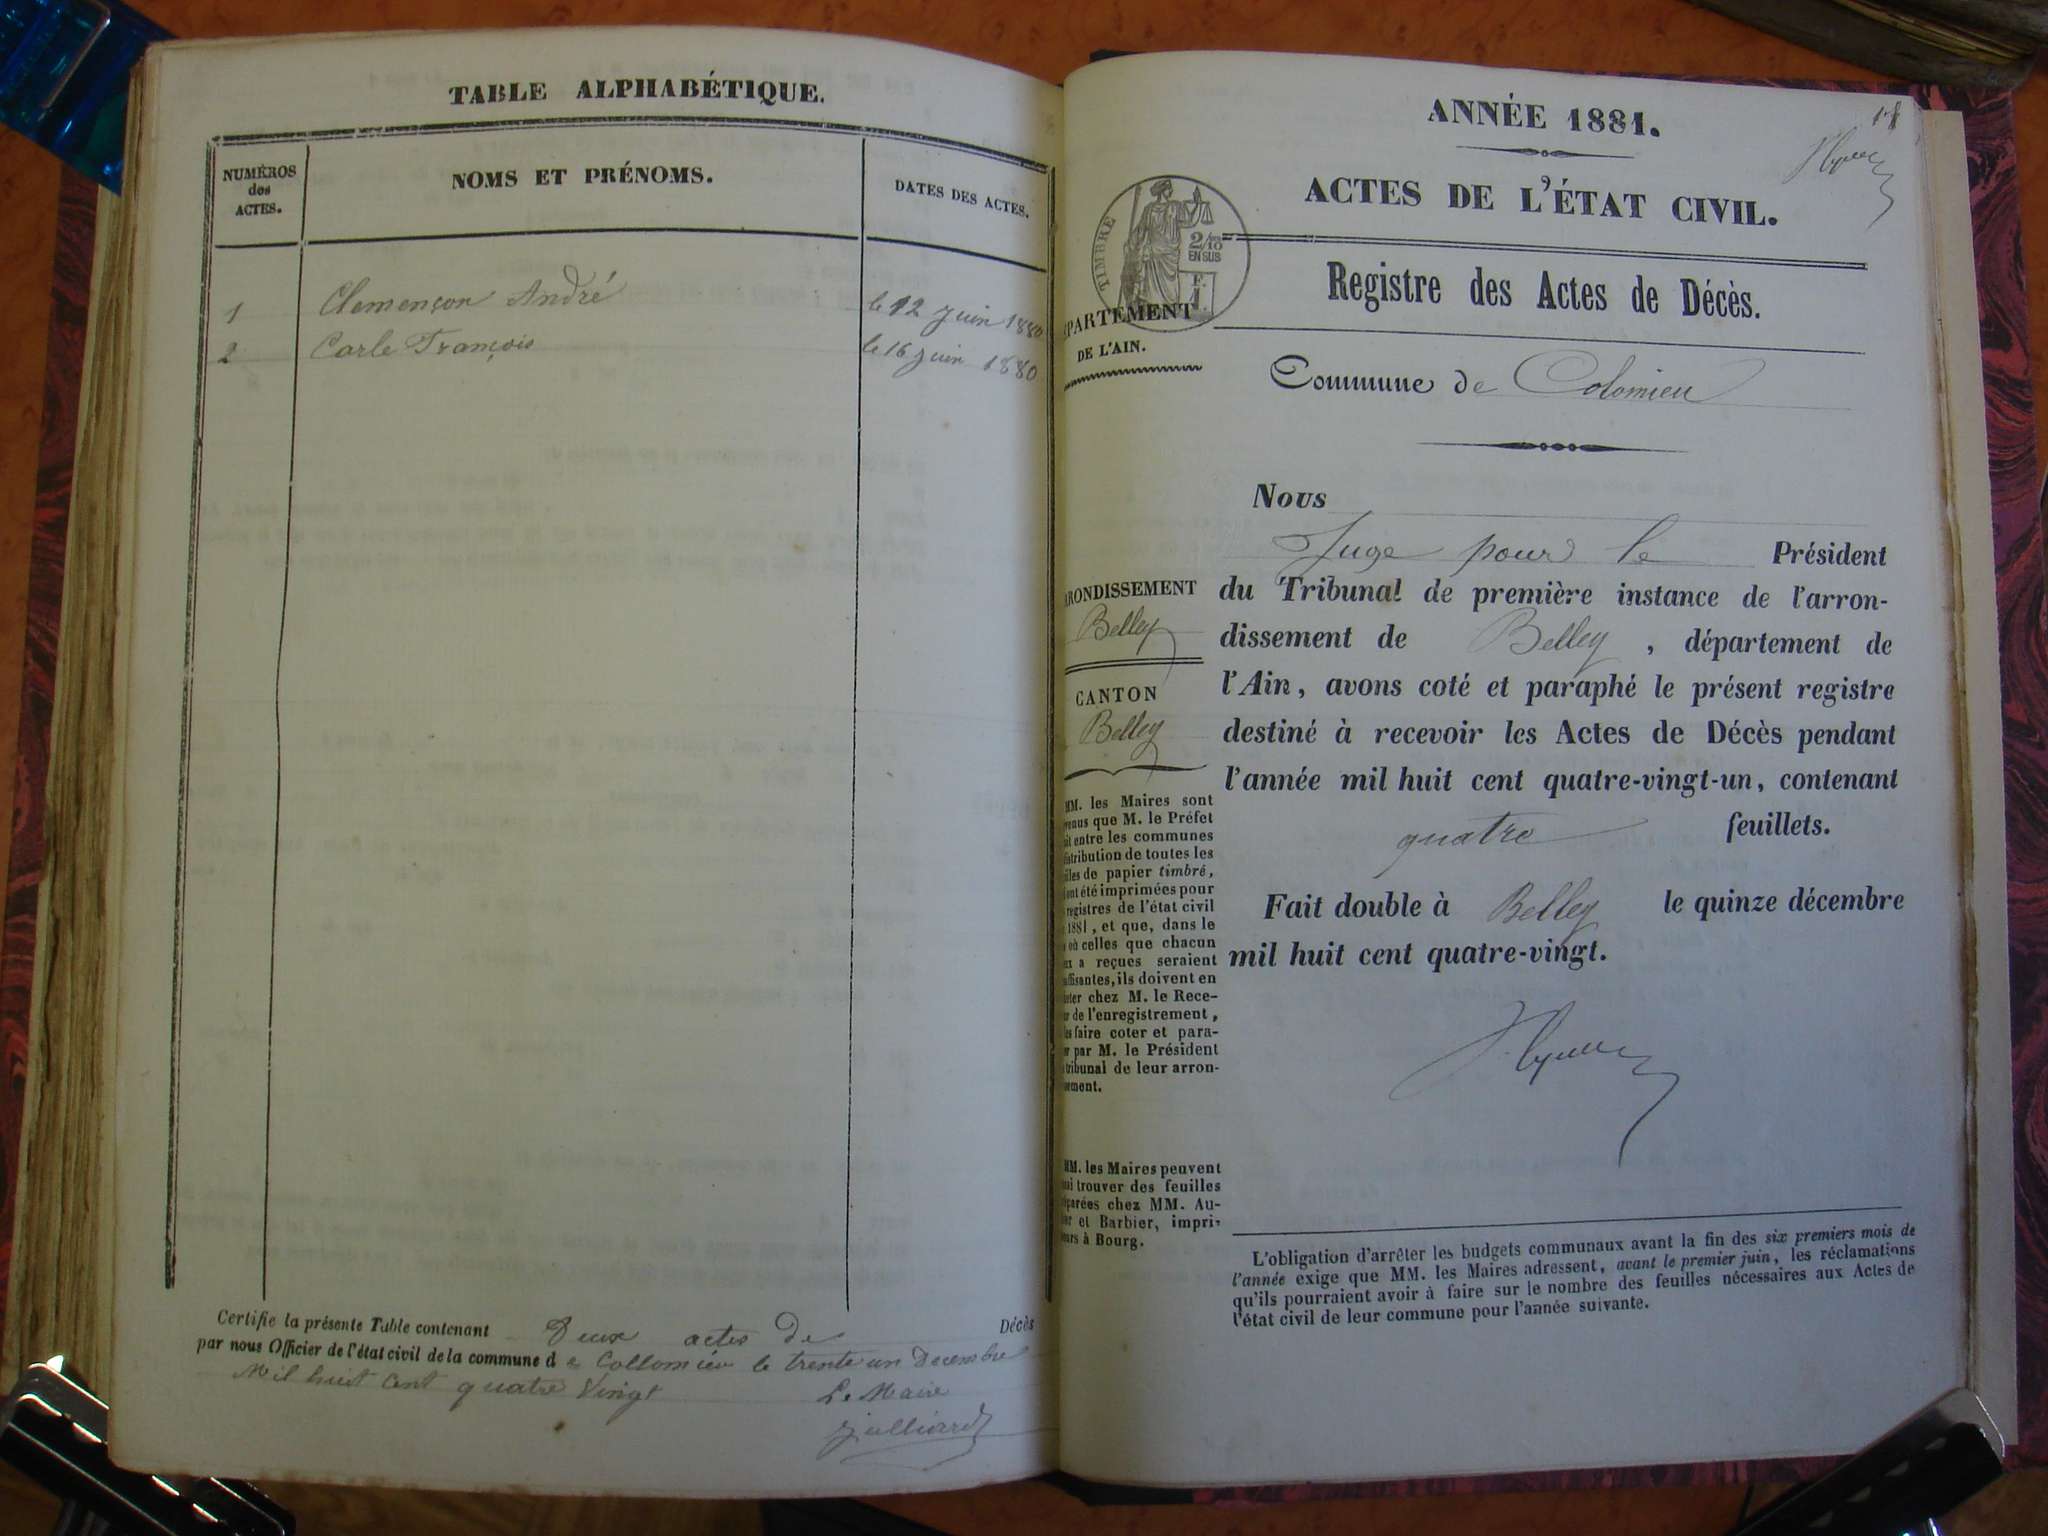 TABLE ALPHABÉTIQUE.
NUMÉROS
des
ACTES.
NOMS ET PRÉNOMS.
DATES DES ACTES.
1 Clemençon André le 12 juin 1880
2 Carle François le 16 juin 1880
Certifie la présente Table contenant Deux actes de Décès
par nous Officier de l'état civil de la commune d e Collomieu le trente un Decembre
Mil huit cent quatre Vingt Le Maire
Julliard
18
ANNÉE 1881.
ACTES DE L'ÉTAT CIVIL.
TIMBRE
2/10
EN SUS
F.
1.
Registre des Actes de Décès.
PARTEMENT
DE L'AIN.
Commune de Colomieu
Nous
Juge pour le Président
du Tribunal de première instance de l'arron-
dissement de Belley, département de
l'Ain, avons coté et paraphé le présent registre
destiné à recevoir les Actes de Décès pendant
l'année mil huit cent quatre-vingt-un, contenant
quatre feuillets.
Fait double à Belley le quinze décembre
mil huit cent quatre-vingt.
RONDISSEMENT
Belley
CANTON
Belley
MM. les Maires sont
venus que M. le Préfet
it entre les communes
istribution de toutes les
illes de papier timbré,
ont été imprimées pour
registres de l'état civil
1881, et que, dans le
où celles que chacun
ux a reçues seraient
ffisantes, ils doivent en
eter chez M. le Rece-
r de l'enregistrement,
es faire coter et para-
er par M. le Président
tribunal de leur arron-
ement.
MM. les Maires peuvent
si trouver des feuilles
éparées chez MM. Au-
er et Barbier, impri-
eurs à Bourg.
L'obligation d'arrêter les budgets communaux avant la fin des six premiers mois de
l'année exige que MM. les Maires adressent, avant le premier juin, les réclamations
qu'ils pourraient avoir à faire sur le nombre des feuilles nécessaires aux Actes de
l'état civil de leur commune pour l'année suivante.